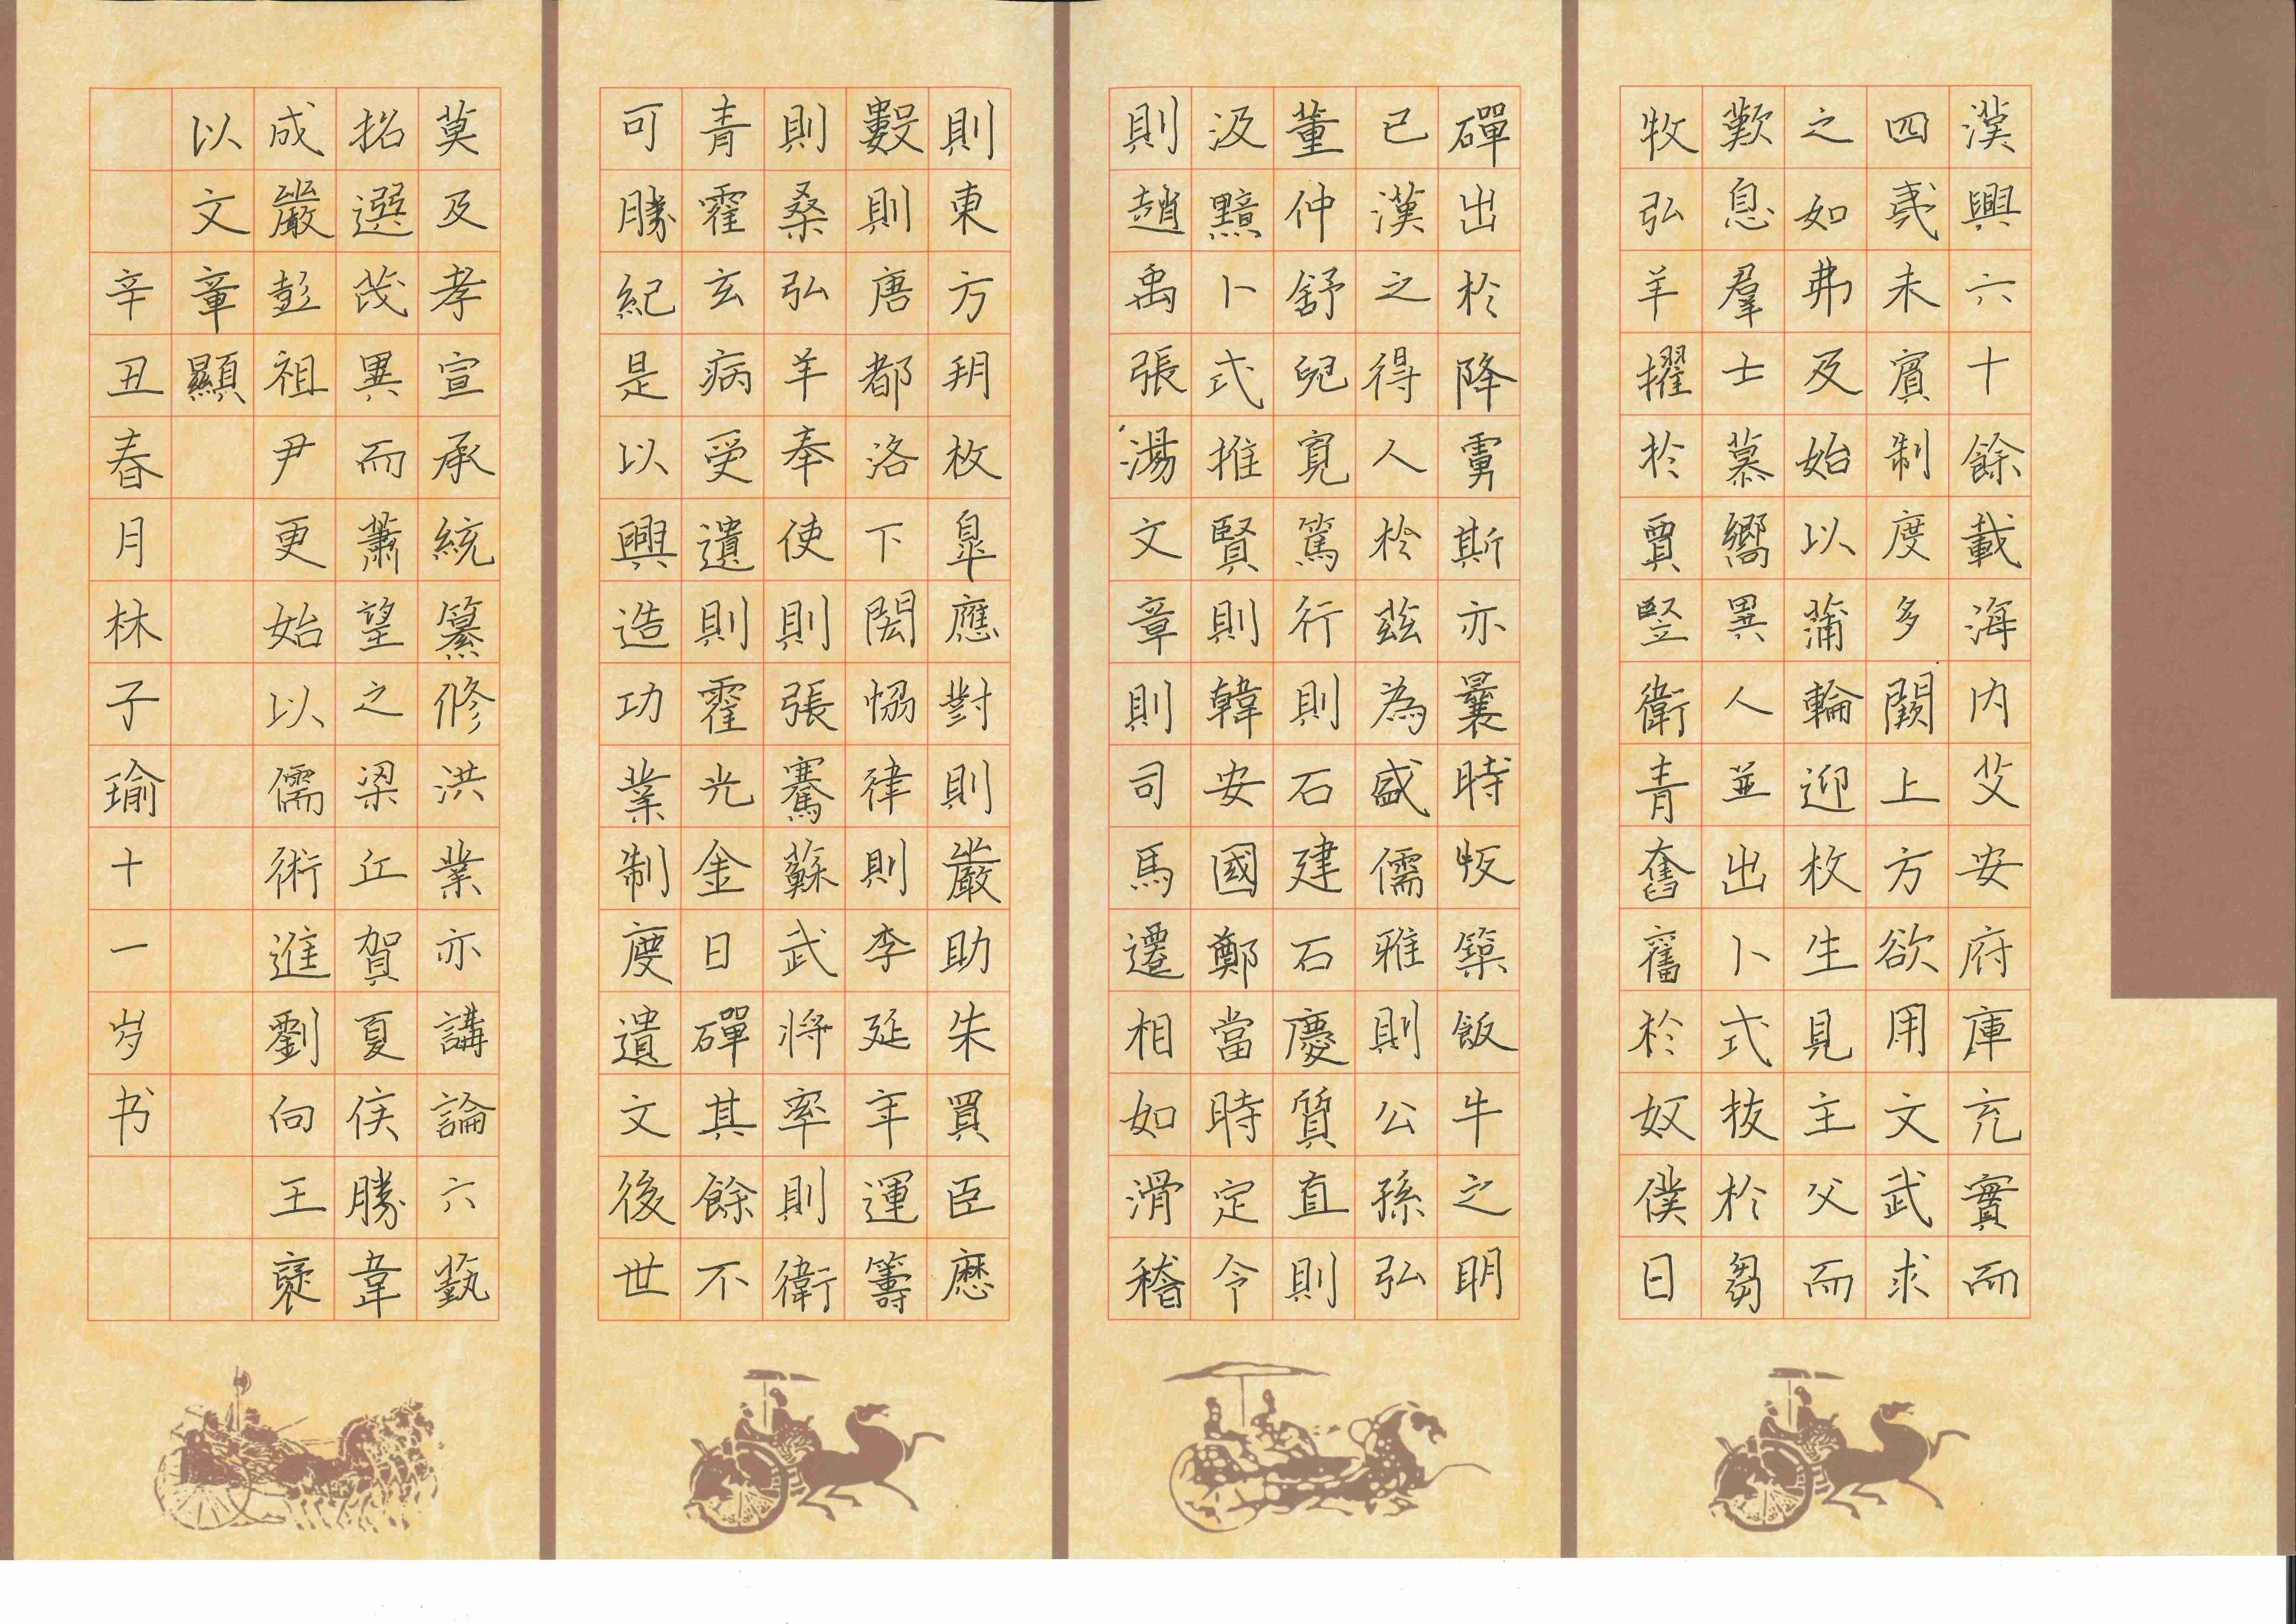 漢興六十餘載海内艾安府庫充實而
四夷未賓制度多闕上方欲用文武求
之如弗及始以蒲輪迎枚生見主父而
歎息羣士慕嚮異人並出卜式拔於芻
牧弘羊擢於賈豎衛青奮舊於奴僕日
磾出於降虜斯亦曩時版築飯牛之明
已漢之得人於茲為盛儒雅則公孫弘
董仲舒兒寬篤行則石建石慶質直則
汲黯卜式推賢則韓安國鄭當時定令
則趙禹張湯文章則司馬遷相如滑稽
則東方朔枚皐應對則嚴助朱買臣歷
數則唐都洛下閎恊律則李延年運籌
則桑弘羊奉使則張騫蘇武將率則衛
青霍玄病受遺則霍光金日磾其餘不
可勝紀是以興造功業制度遺文後世
莫及孝宣承統纂修洪業亦講論六藝
招選茂異而蕭望之梁丘賀夏侯勝韋
成嚴彭祖尹更始以儒術進劉向王褒
以文章顯
辛丑春月林子瑜十一岁书